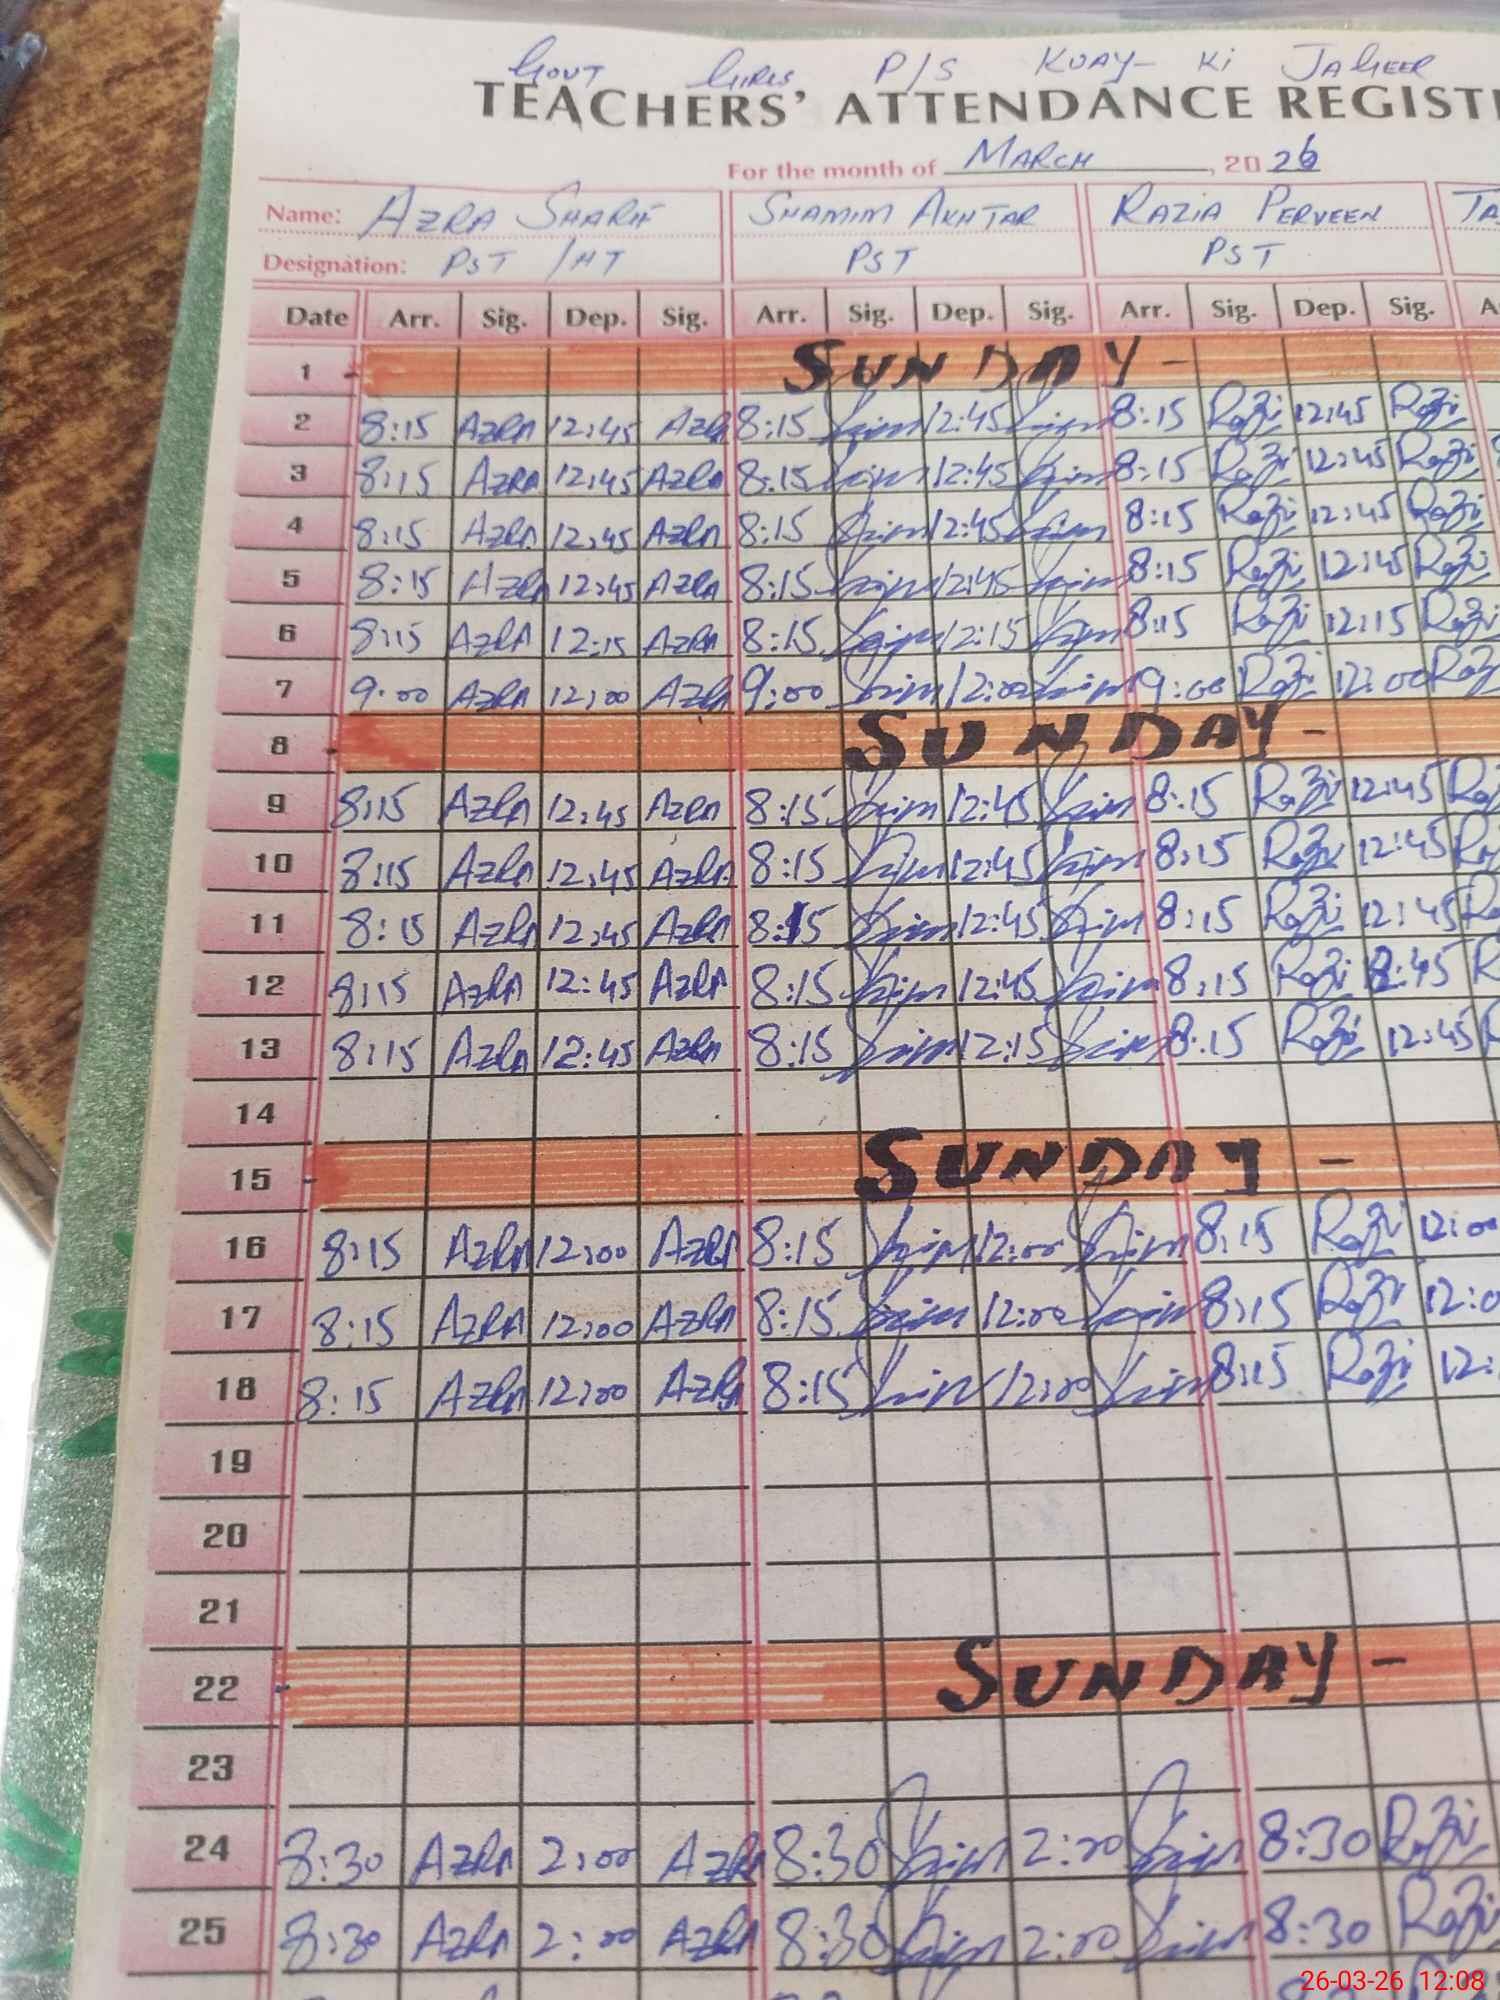 Govt Girls P/S Kuay- Ki Jageer
TEACHERS' ATTENDANCE REGIST
For the month of March, 2026
Name: Azra Sharif Shamim Akhtar Razia Perveen Ta
Designation: PST /HT PST PST
Date Arr. Sig. Dep. Sig. Arr. Sig. Dep. Sig. Arr. Sig. Dep. Sig. A
1 SUNDAY -
2 8:15 Azra 12:45 Azra 8:15 12:45 8:15 Razi 12:45 Razi
3 8:15 Azra 12:45 Azra 8:15 12:45 8:15 Razi 12:45 Razi
4 8:15 Azra 12:45 Azra 8:15 12:45 8:15 Razi 12:45 Razi
5 8:15 Azra 12:45 Azra 8:15 12:45 8:15 Razi 12:45 Razi
6 8:15 Azra 12:15 Azra 8:15 12:15 8:15 Razi 12:15 Razi
7 9:00 Azra 12:00 Azra 9:00 12:00 9:00 Razi 12:00 Raz
8 SUNDAY -
9 8:15 Azra 12:45 Azra 8:15 12:45 8:15 Razi 12:45 Raz
10 8:15 Azra 12:45 Azra 8:15 12:45 8:15 Razi 12:45 Ra
11 8:15 Azra 12:45 Azra 8:15 12:45 8:15 Razi 12:45 Ra
12 8:15 Azra 12:45 Azra 8:15 12:45 8:15 Razi 12:45 R
13 8:15 Azra 12:45 Azra 8:15 12:15 8:15 Razi 12:45 R
14
15 SUNDAY -
16 8:15 Azra 12:00 Azra 8:15 12:00 8:15 Razi 12:00
17 8:15 Azra 12:00 Azra 8:15 12:00 8:15 Razi 12:0
18 8:15 Azra 12:00 Azra 8:15 12:00 8:15 Razi 12:
19
20
21
22 SUNDAY -
23
24 8:30 Azra 2:00 Azra 8:30 2:00 8:30 Razi
25 8:30 Azra 2:00 Azra 8:30 2:00 8:30 Razi
26-03-26 12:08